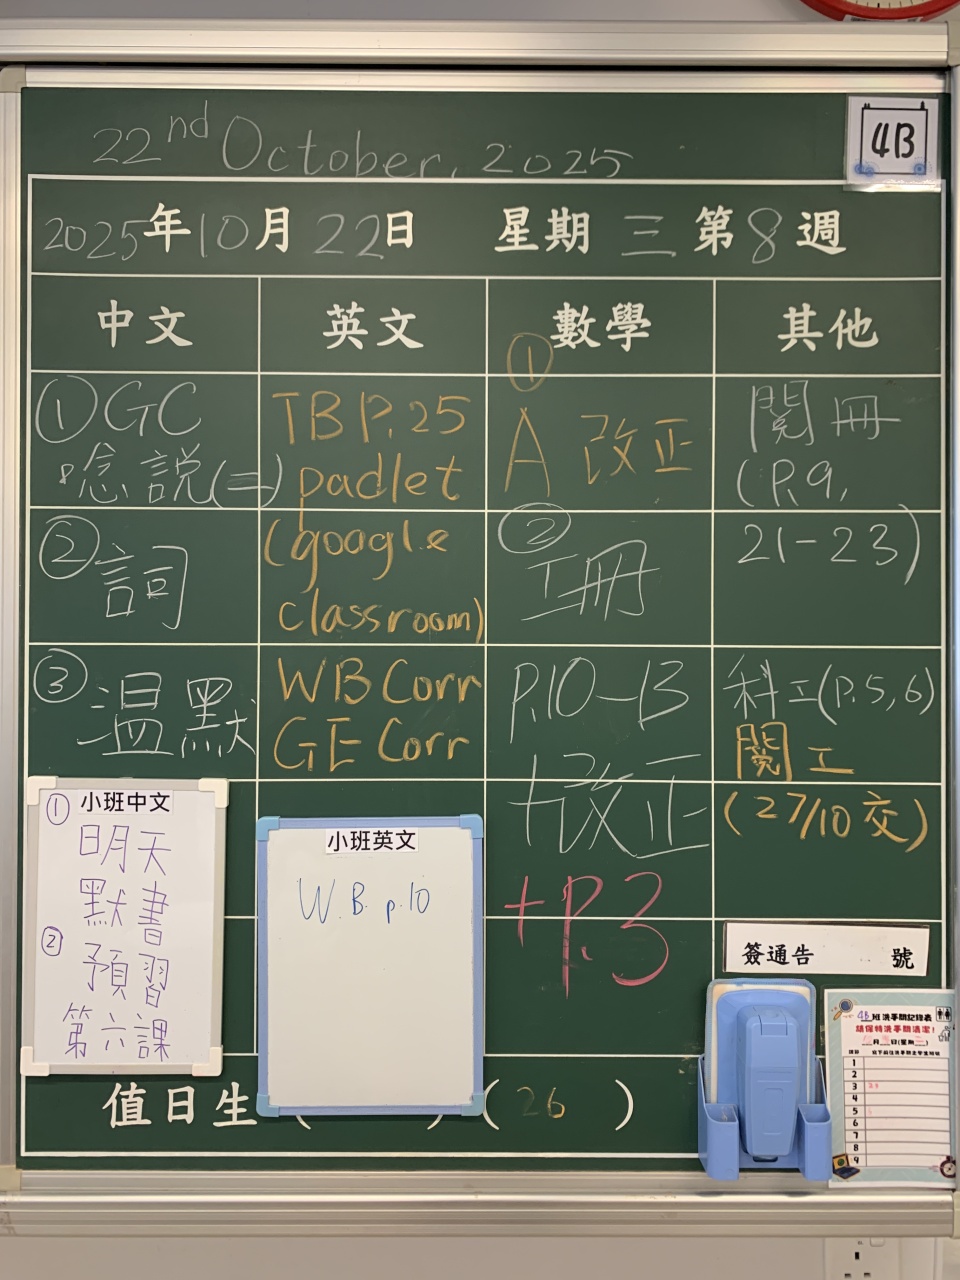 22nd October, 2025
4B
2025年10月22日 星期三 第8週
中文 英文 數學 其他
①GC
唸說(二)
②詞
③溫默
TB P.25
padlet
(google
classroom)
WB Corr
GE Corr
①
A 改正
②
工冊
P.10-13
+改正
+P.3
閱冊
(P.9,
21-23)
科工(P.5,6)
閱工
(27/10交)
小班中文
①明天
默書
②預習
第六課
小班英文
W.B. p.10
簽通告 號
值日生 ( ) (26)
4B班洗手間記錄表
請保持洗手間清潔!
月 日(星期三)
1
2
3
4
5
6
7
8
9